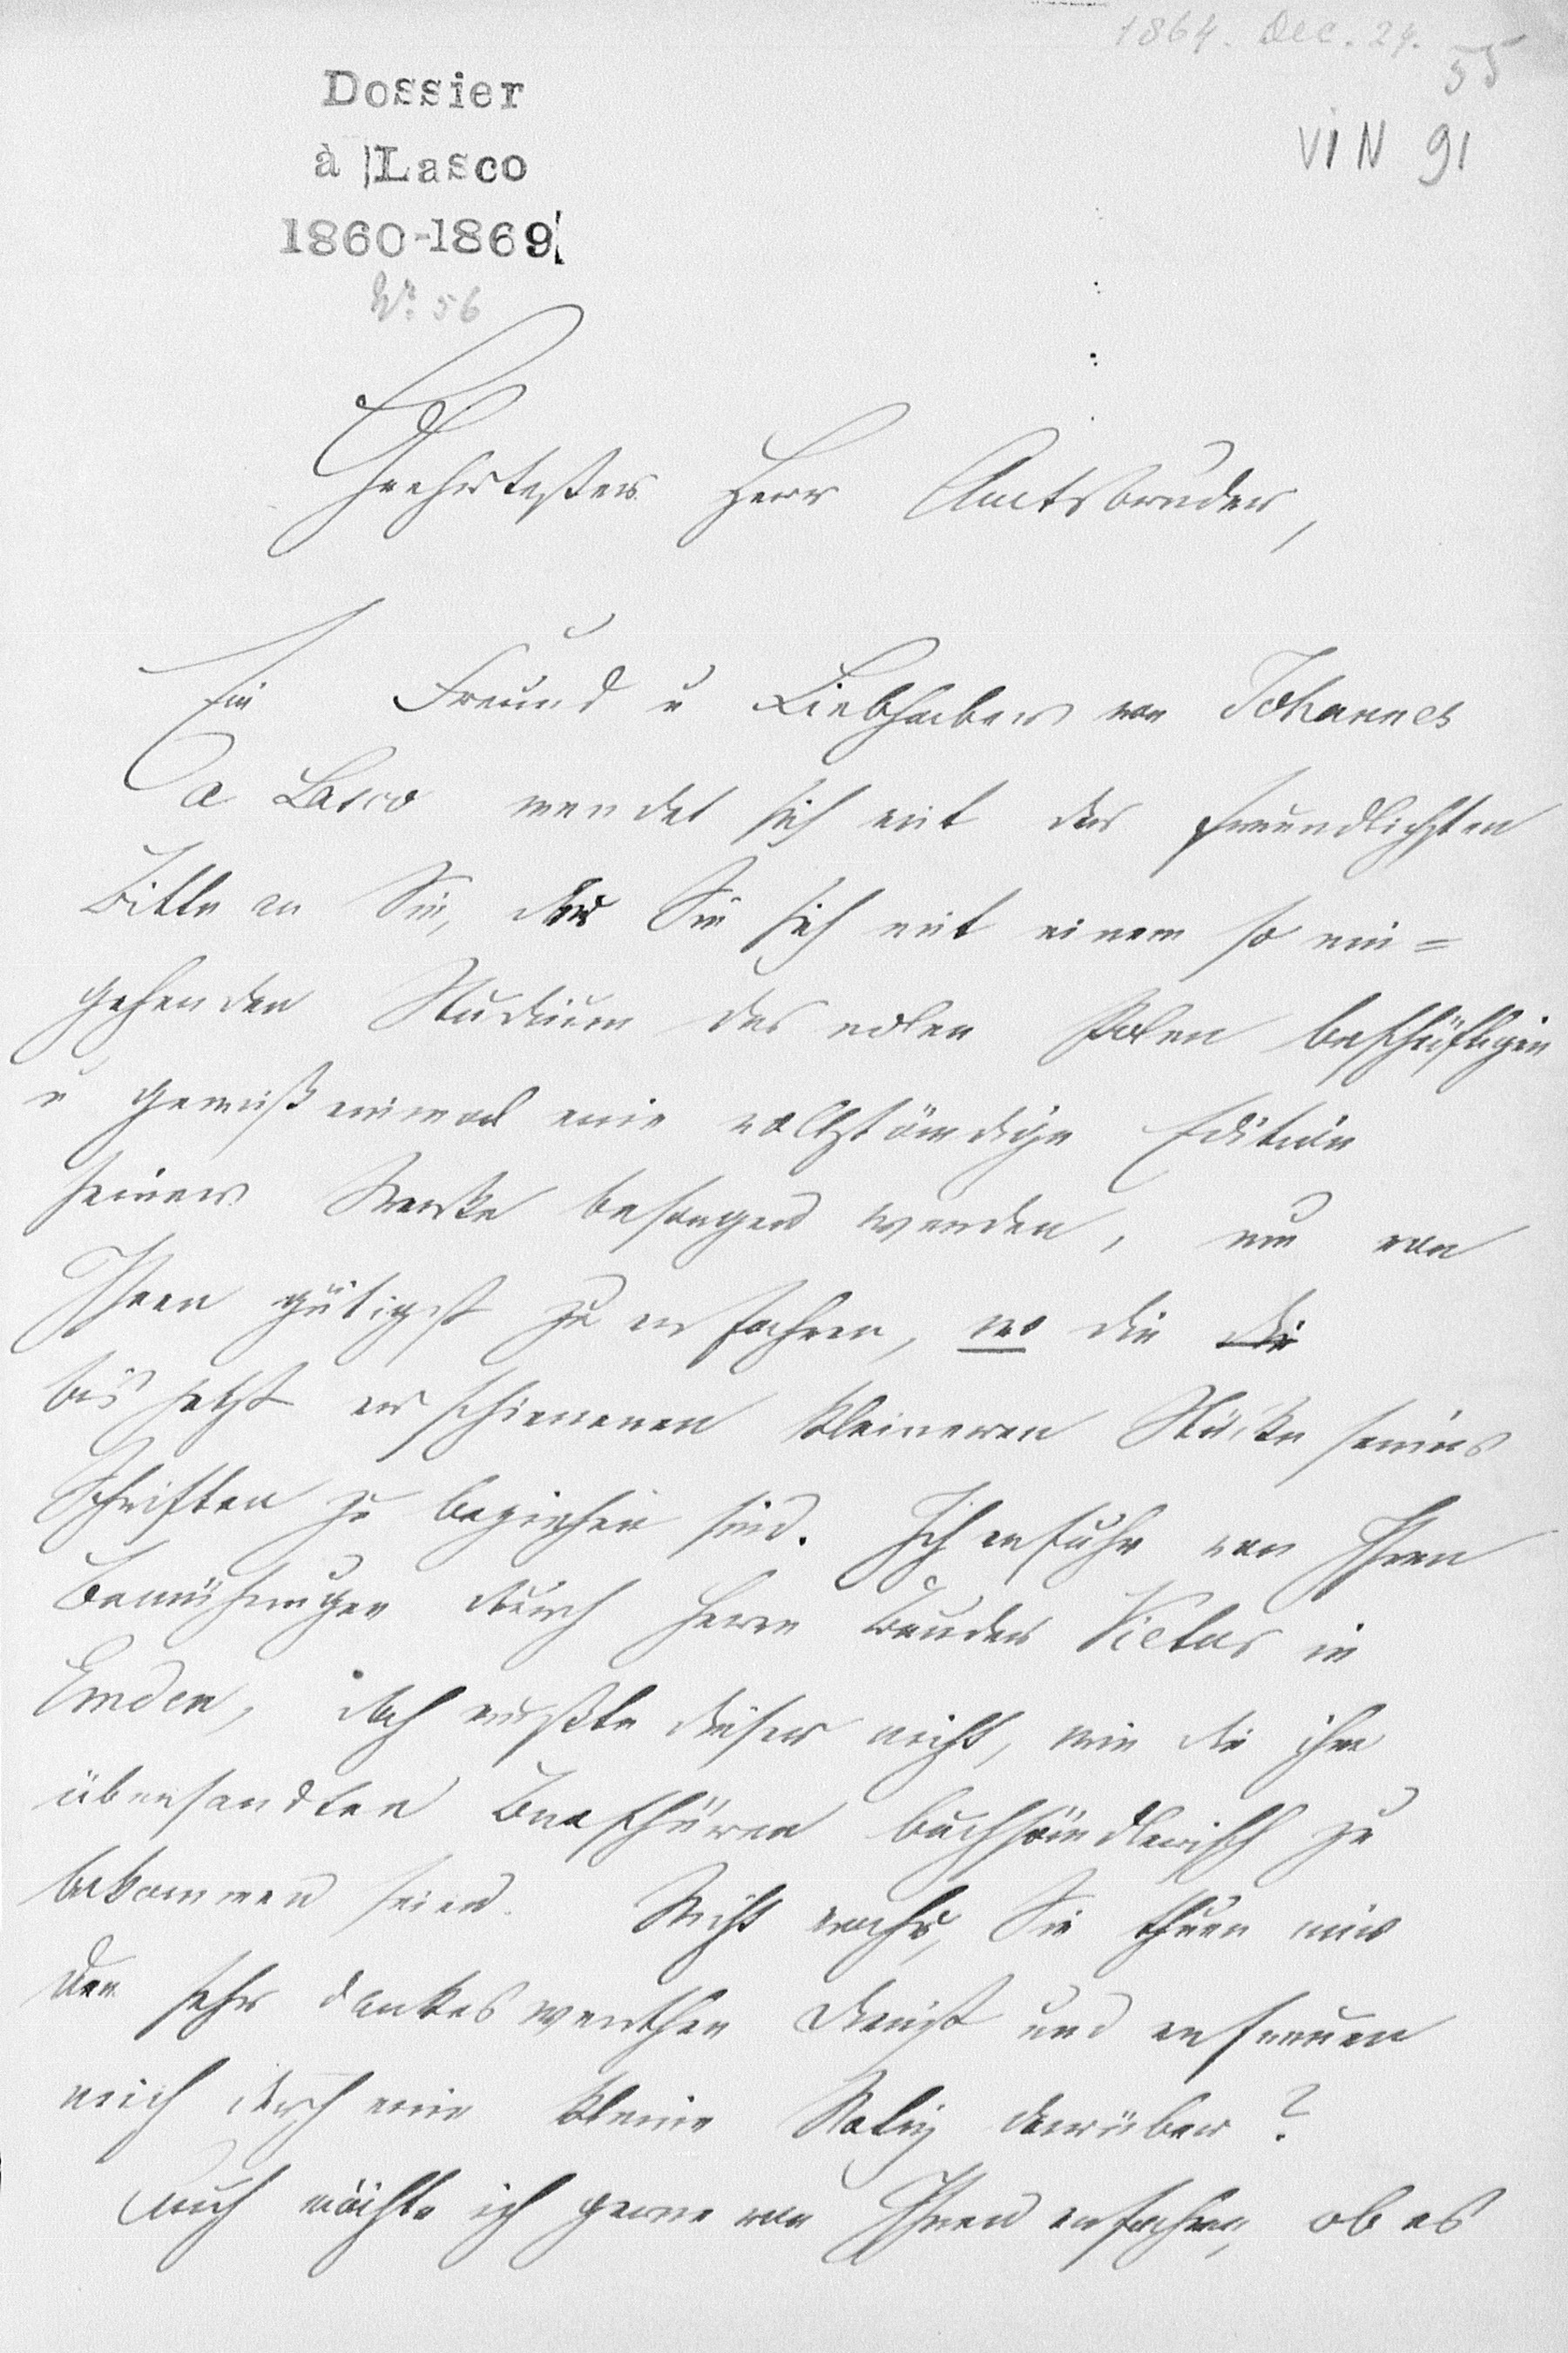 1864. Dec. 24.
55
Dossier
à Lasco
1860-1869
VI N 91
No. 56
Geehrtester Herr Amtsbruder,
Ein Freund u Liebhaber von Johannes
a Lasco wendet sich mit der freundlichsten
Bitte an Sie, der Sie sich mit einem so ein=
gehenden Studium des edlen Polen beschäftigen
u gewiß einmal eine vollständige Edition
seiner Werke besorgen werden, um von
Ihnen gütigst zu erfahren, wo die die
bis jetzt erschienenen kleineren Stücke seiner
Schriften zu beziehen sind. Ich erfuhr von Ihren
Bemühungen durch Herrn Bruder Victor in
Emden, doch wußte dieser nicht, wie die ihm
übersandten Broschüren buchhändlerisch zu
bekommen seien. Nicht wahr, Sie thuen mir
den sehr dankeswerthen Dienst und erfreuen
mich durch eine kleine Notiz darüber?
Auch möchte ich gerne von Ihnen erfahren, ob es